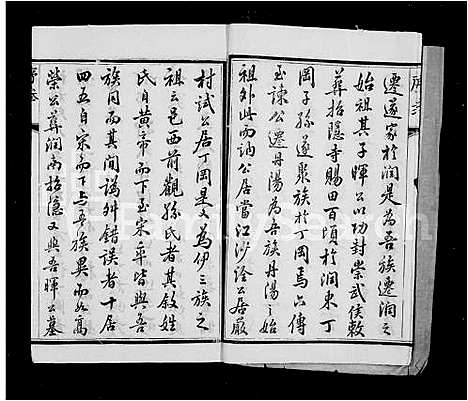 遷遂家於潤是為吾族遷潤之
始祖其子暉公以功封崇武侯敕
葬招隱寺賜田百頃於潤東丁
岡子孫遂聚族於丁岡焉六傳
至諫公遷丹湯為吾族丹湯之始
祖外此而訥公居當江沙詮公居嚴
村試公居丁岡是又為伊三族之
祖云邑西前觀孫氏者其敘姓
氏自黃帝而下至宋年皆與吾
族同而其間譌舛錯誤者十居
四五自宋而下与吾族異而如高
榮公葬潤南招隱又與吾暉公墓
序叁
FamilySearch